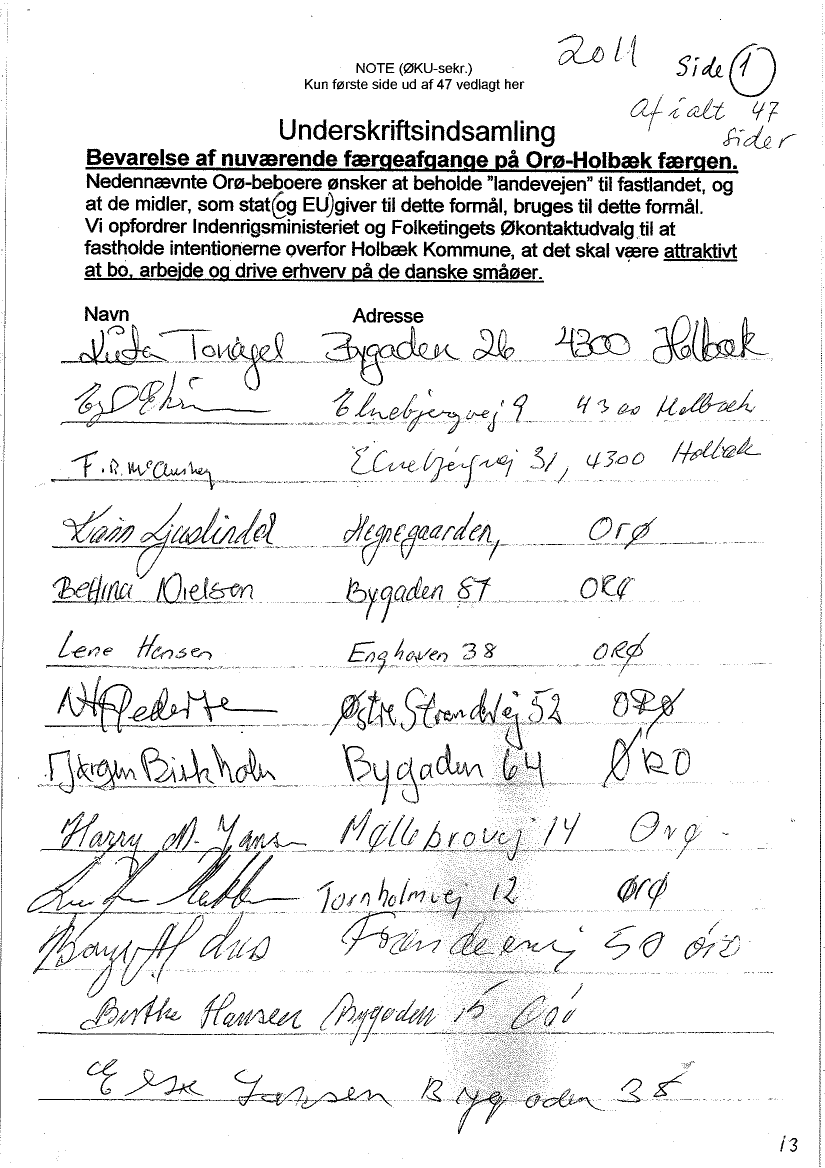 2011
Side 1
NOTE (ØKU-sekr.)
Kun første side ud af 47 vedlagt her
af i alt 47
sider
Underskriftsindsamling
Bevarelse af nuværende færgeafgange på Orø-Holbæk færgen.
Nedennævnte Orø-beboere ønsker at beholde "landevejen" til fastlandet, og
at de midler, som stat (og EU) giver til dette formål, bruges til dette formål.
Vi opfordrer Indenrigsministeriet og Folketingets Økontaktudvalg til at
fastholde intentionerne overfor Holbæk Kommune, at det skal være attraktivt
at bo, arbejde og drive erhverv på de danske småøer.
Navn Adresse
Bygaden 26 4300 Holbæk
Elnebjergvej 9 4300 Holbæk
F.R. Elnebjergvej 31, 4300 Holbæk
Ljuslindel Hegnegaarden, Orø
Bettina Nielsen Bygaden 87 ORØ
Lene Hansen Enghaven 38 ORØ
Østre Strandvej 52 ORØ
Jørgen Birkholm Bygaden 64 ØRO
Harry M. Møllebrovej 14 Orø
Tornholmvej 12 ØRØ
50
Birthe Hansen Bygaden 15
Else Jansen Bygaden 38
13